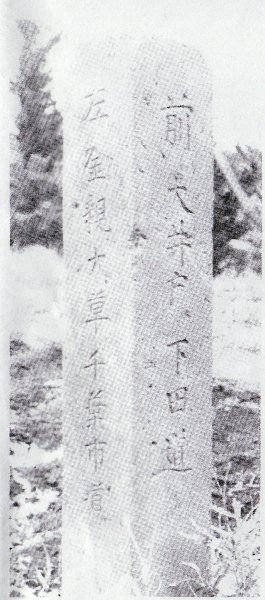 前大井戸、下田道
左金親大草千葉市道